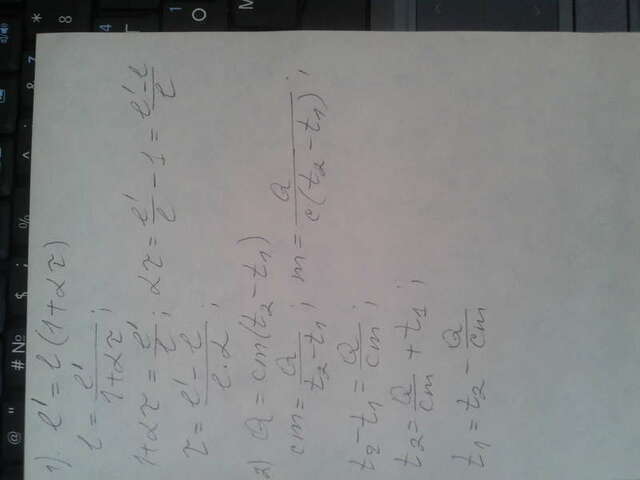 @ " # № $ ; % ^ : & 7
* 8
4
1
O
M
1). l' = l (1+ατ)
l = l'/(1+ατ) ;
1+ατ = l'/l ; ατ = l'/l − 1 = (l'−l)/l
τ = (l'−l)/(l·α) ;
2) Q = cm(t₂−t₁)
cm = Q/(t₂−t₁) ; m = Q/(c(t₂−t₁)) ;
t₂−t₁ = Q/cm ;
t₂ = Q/cm + t₁ ;
t₁ = t₂ − Q/cm